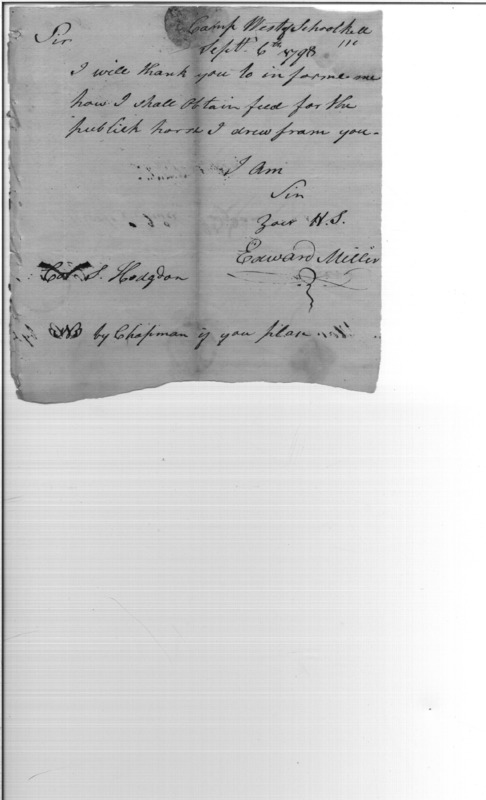 Camp West of Schoolkill
Sir Sept. 6th 1798
I will thank you to informe me
how I shall Obtain feed for the
publick horse I drew from you -
I Am
Sir
Your H. S.
Edward Miller
S. Hodgdon
NB by Chapman if you pleas